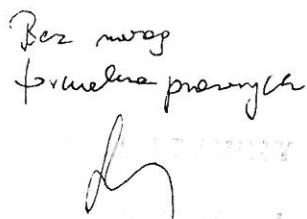 Bez uwag
formalno prawnych